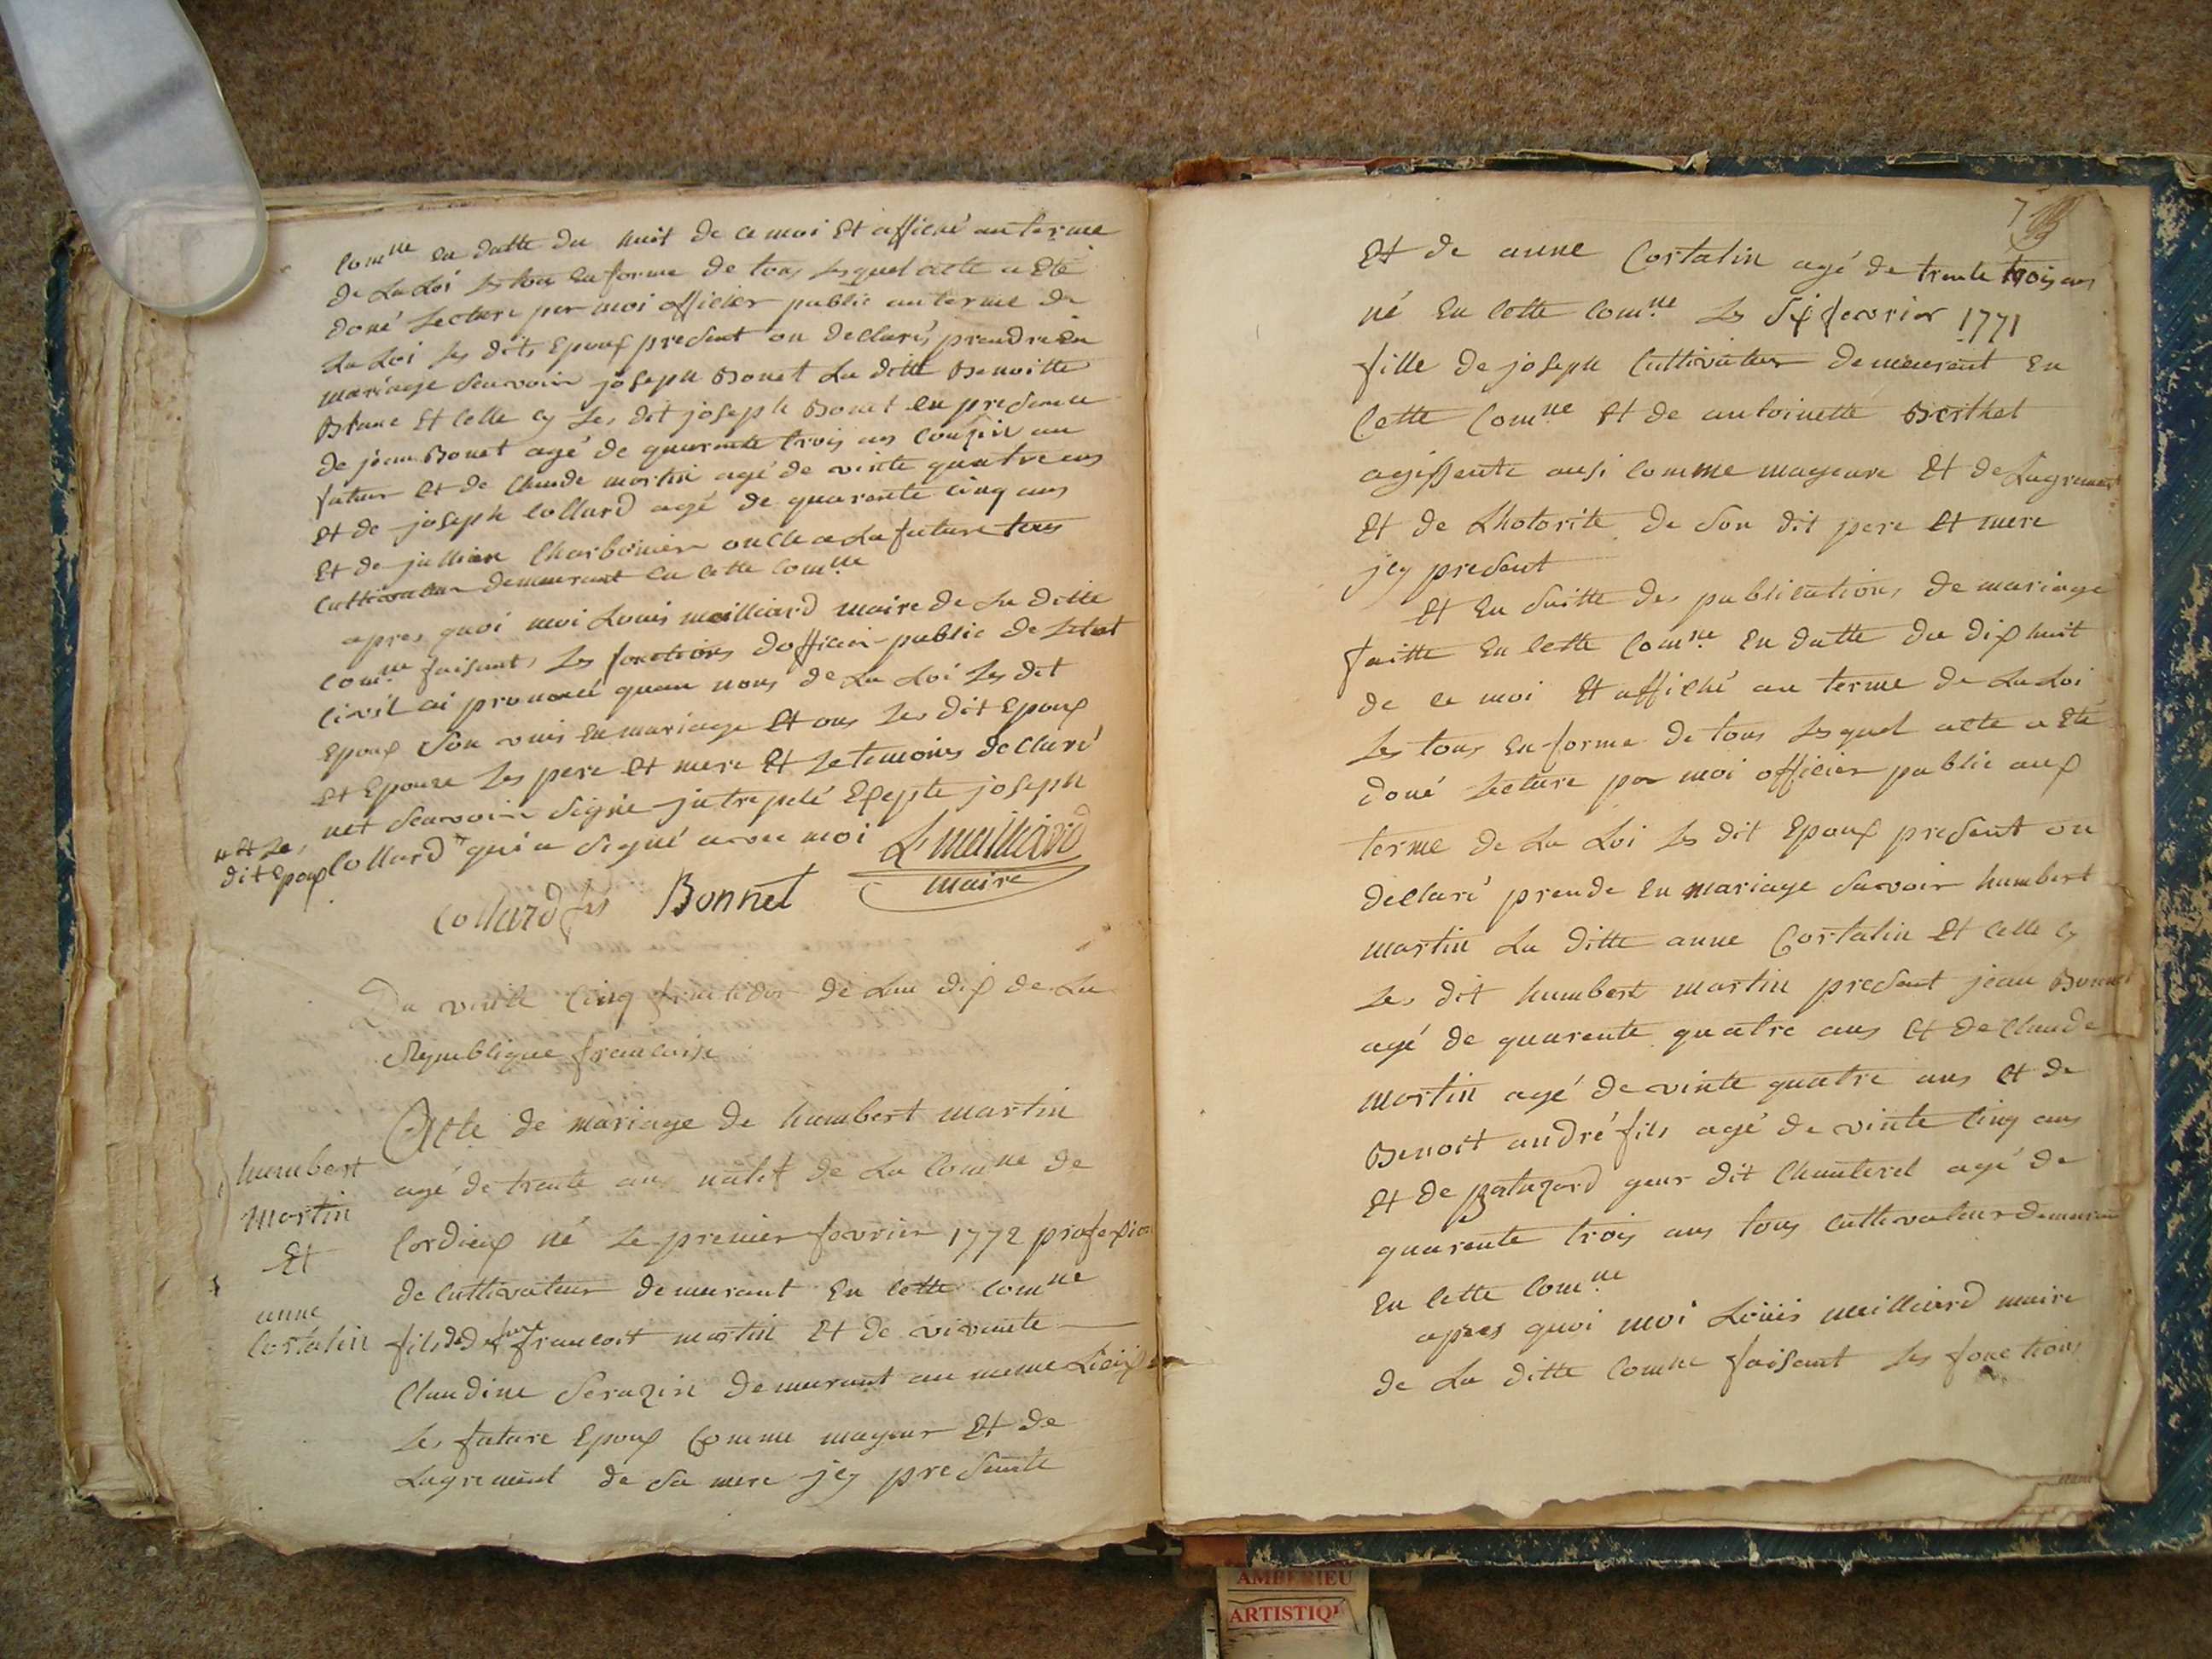 Com.ne en datte du huit de ce moi Et affiché au terme
de La Loi Les tous en forme de tous Lesquel acte a Eté
doné Lecture par moi officier public au terme de
La Loi Les dits Epoux present on declarés prendre en
mariage Scavoir joseph Bonet La ditte Benoitte
Et Celle cy Les dit joseph Bonet en presence
de jean Bonet agé de quarente trois ans Couzin au
futur Et de Claude martin agé de vinte quatre ans
Et de joseph Collard agé de quarente Cinq ans
Et de jullien Charbonier oncle a La future tous
Cultivateur demeurant en Cette Com.ne
apres quoi moi Louis meilliard maire de La ditte
Com.ne faisant Les fonctions dofficier public de Letat
Civil ai prononcé quau nons de La Loi Les dit
Epoux Son unis en mariage Et ons Les dit Epoux
Et Epouze Les pere Et mere Et Le temoins declaré
net Scavoir Signé jntrepelé Exepte joseph
Collard qui a Signé avec moi
Et Le,
dit Epoux
L. meilliard
maire
Collard fs Bonnet
Du vinte Cinq fructidor de Lan dix de La
Republique francoise
humbert
martin
Et
anne
Costalin
Acte de mariage de humbert martin
agé de trente ans natif de La Com.ne de
Cordieux né Le premier fevrier 1772 profexion
de Cultivateur demurant En Cette Com.ne
fils de feu francoit martin Et de vivante
Claudine Serazin demurant au meme Lieux
Les future Epoux Comme mayeur Et de
Lagrement de Sa mere jcy presente
7
Et de anne Costalin agé de trente trois ans
né En Cette Com.ne Les Six fevrier 1771
fille de joseph Cultivateur demeurant En
Cette Com.ne Et de antoinette Berthet
agissente ausi Comme mayeure Et de Lagrement
Et de Lhotorite de Son dit pere Et mere
jcy present
Et En Suitte des publications de mariage
faitte En Cette Com.ne En datte du dix huit
de ce moi Et affiché au terme de La Loi
Les tous En forme de tous Lesquel acte a Eté
doné Lecture par moi officier public aux
terme de La Loi Les dit Epoux present on
declaré prende En mariage Savoir humbert
martin La ditte anne Costalin Et Celle Cy
Les dit humbert martin present jean Bonnet
agé de quarente quatre ans Et de Claude
martin agé de vinte quatre ans Et de
Benoit andré fils agé de vinte Cinq ans
Et de dit Chanterel agé de
quarente trois ans tous Cultivateur demurant
En Cette Com.ne
apres quoi moi Loüis meilliard maire
de La ditte Comne faisant Les fonctions
AMBERIEU
ARTISTIQ